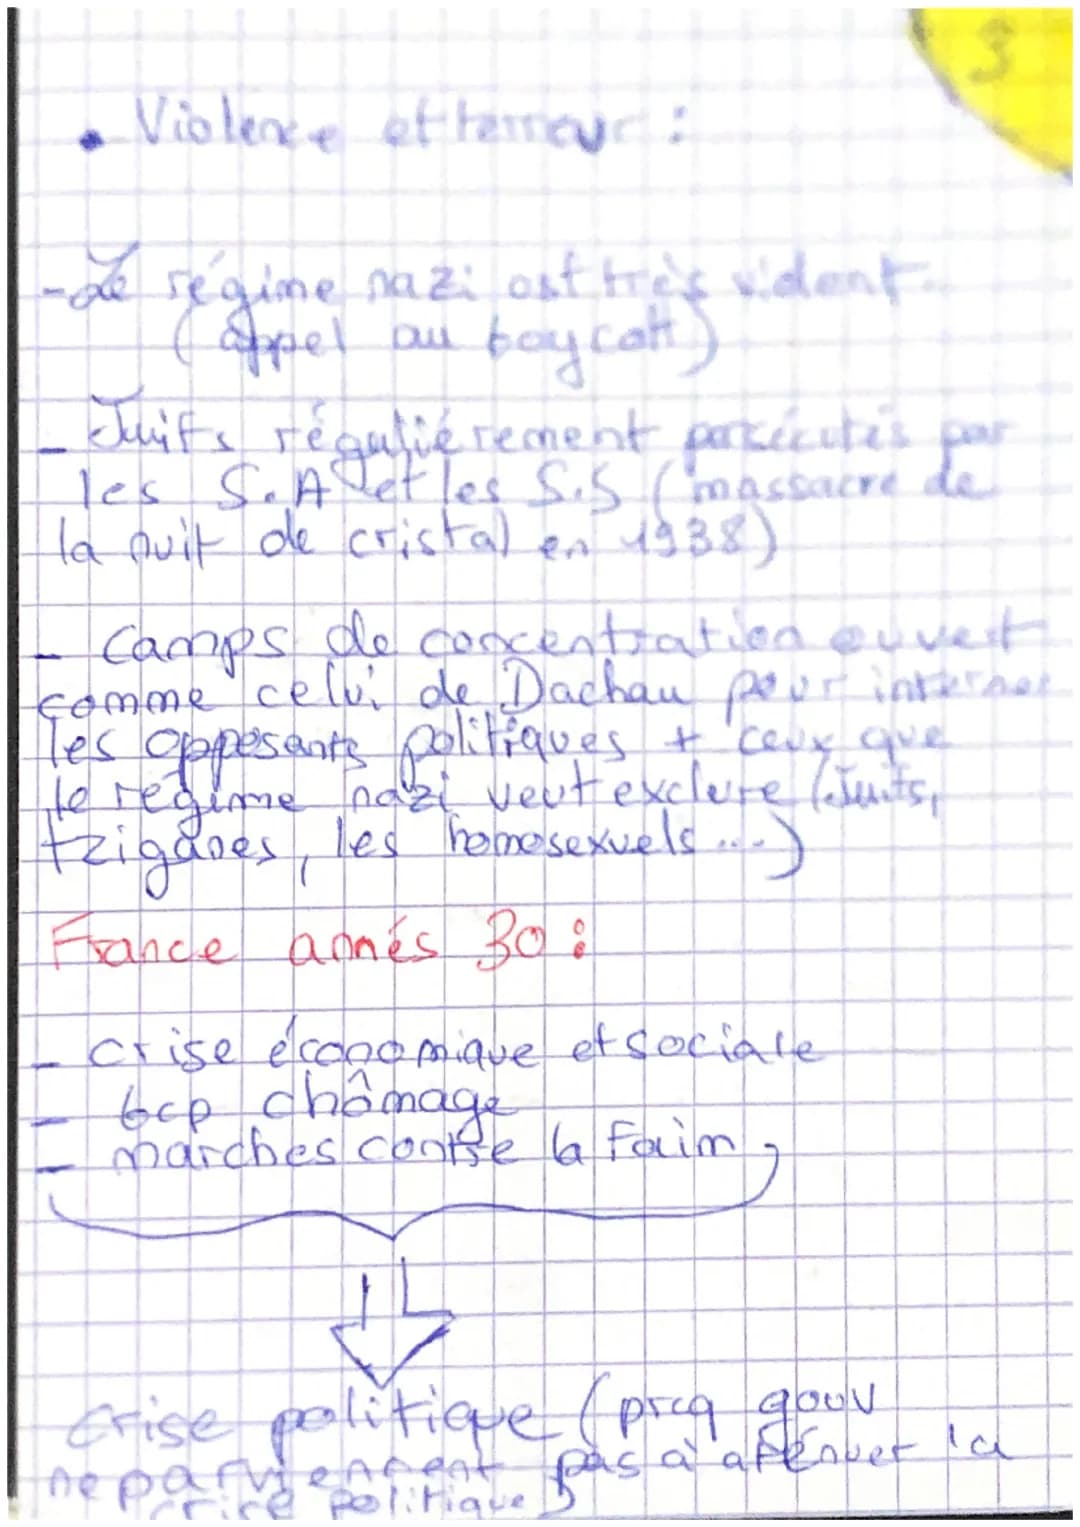 3
• Violence et terreur :
- Le régime nazi est très violent.
(appel au boycott)
- Juifs réguliérement persécutés par
les S.A et les S.S (massacre de
la nuit de cristal en 1938)
- Camps de concentration ouvert
comme celui de Dachau pour interner
les opposants politiques + ceux que
le régime nazi veut exclure (Juifs,
tziganes, les homosexuels ...)
France annés 30 :
- crise économique et sociale
- bcp chômage
- marches contre la faim
Crise politique (prcq gouv
ne parviennent pas à aténuer la
crise politique)